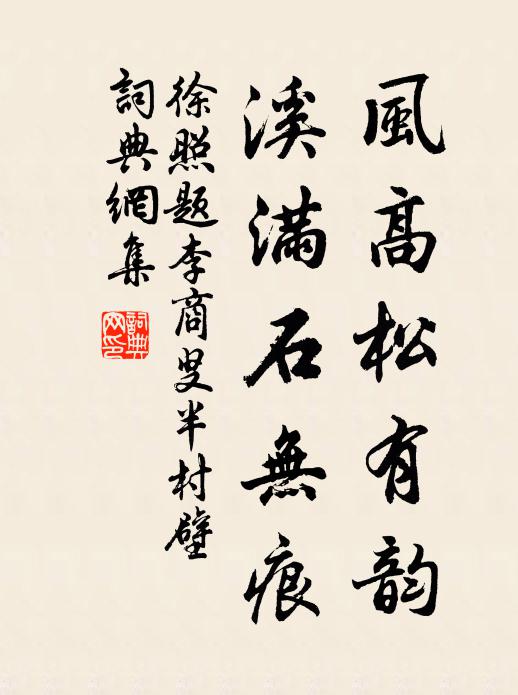 風高松有韵
溪滿石無痕
徐照題李商叟半村壁
詞典網集
詞典
网印